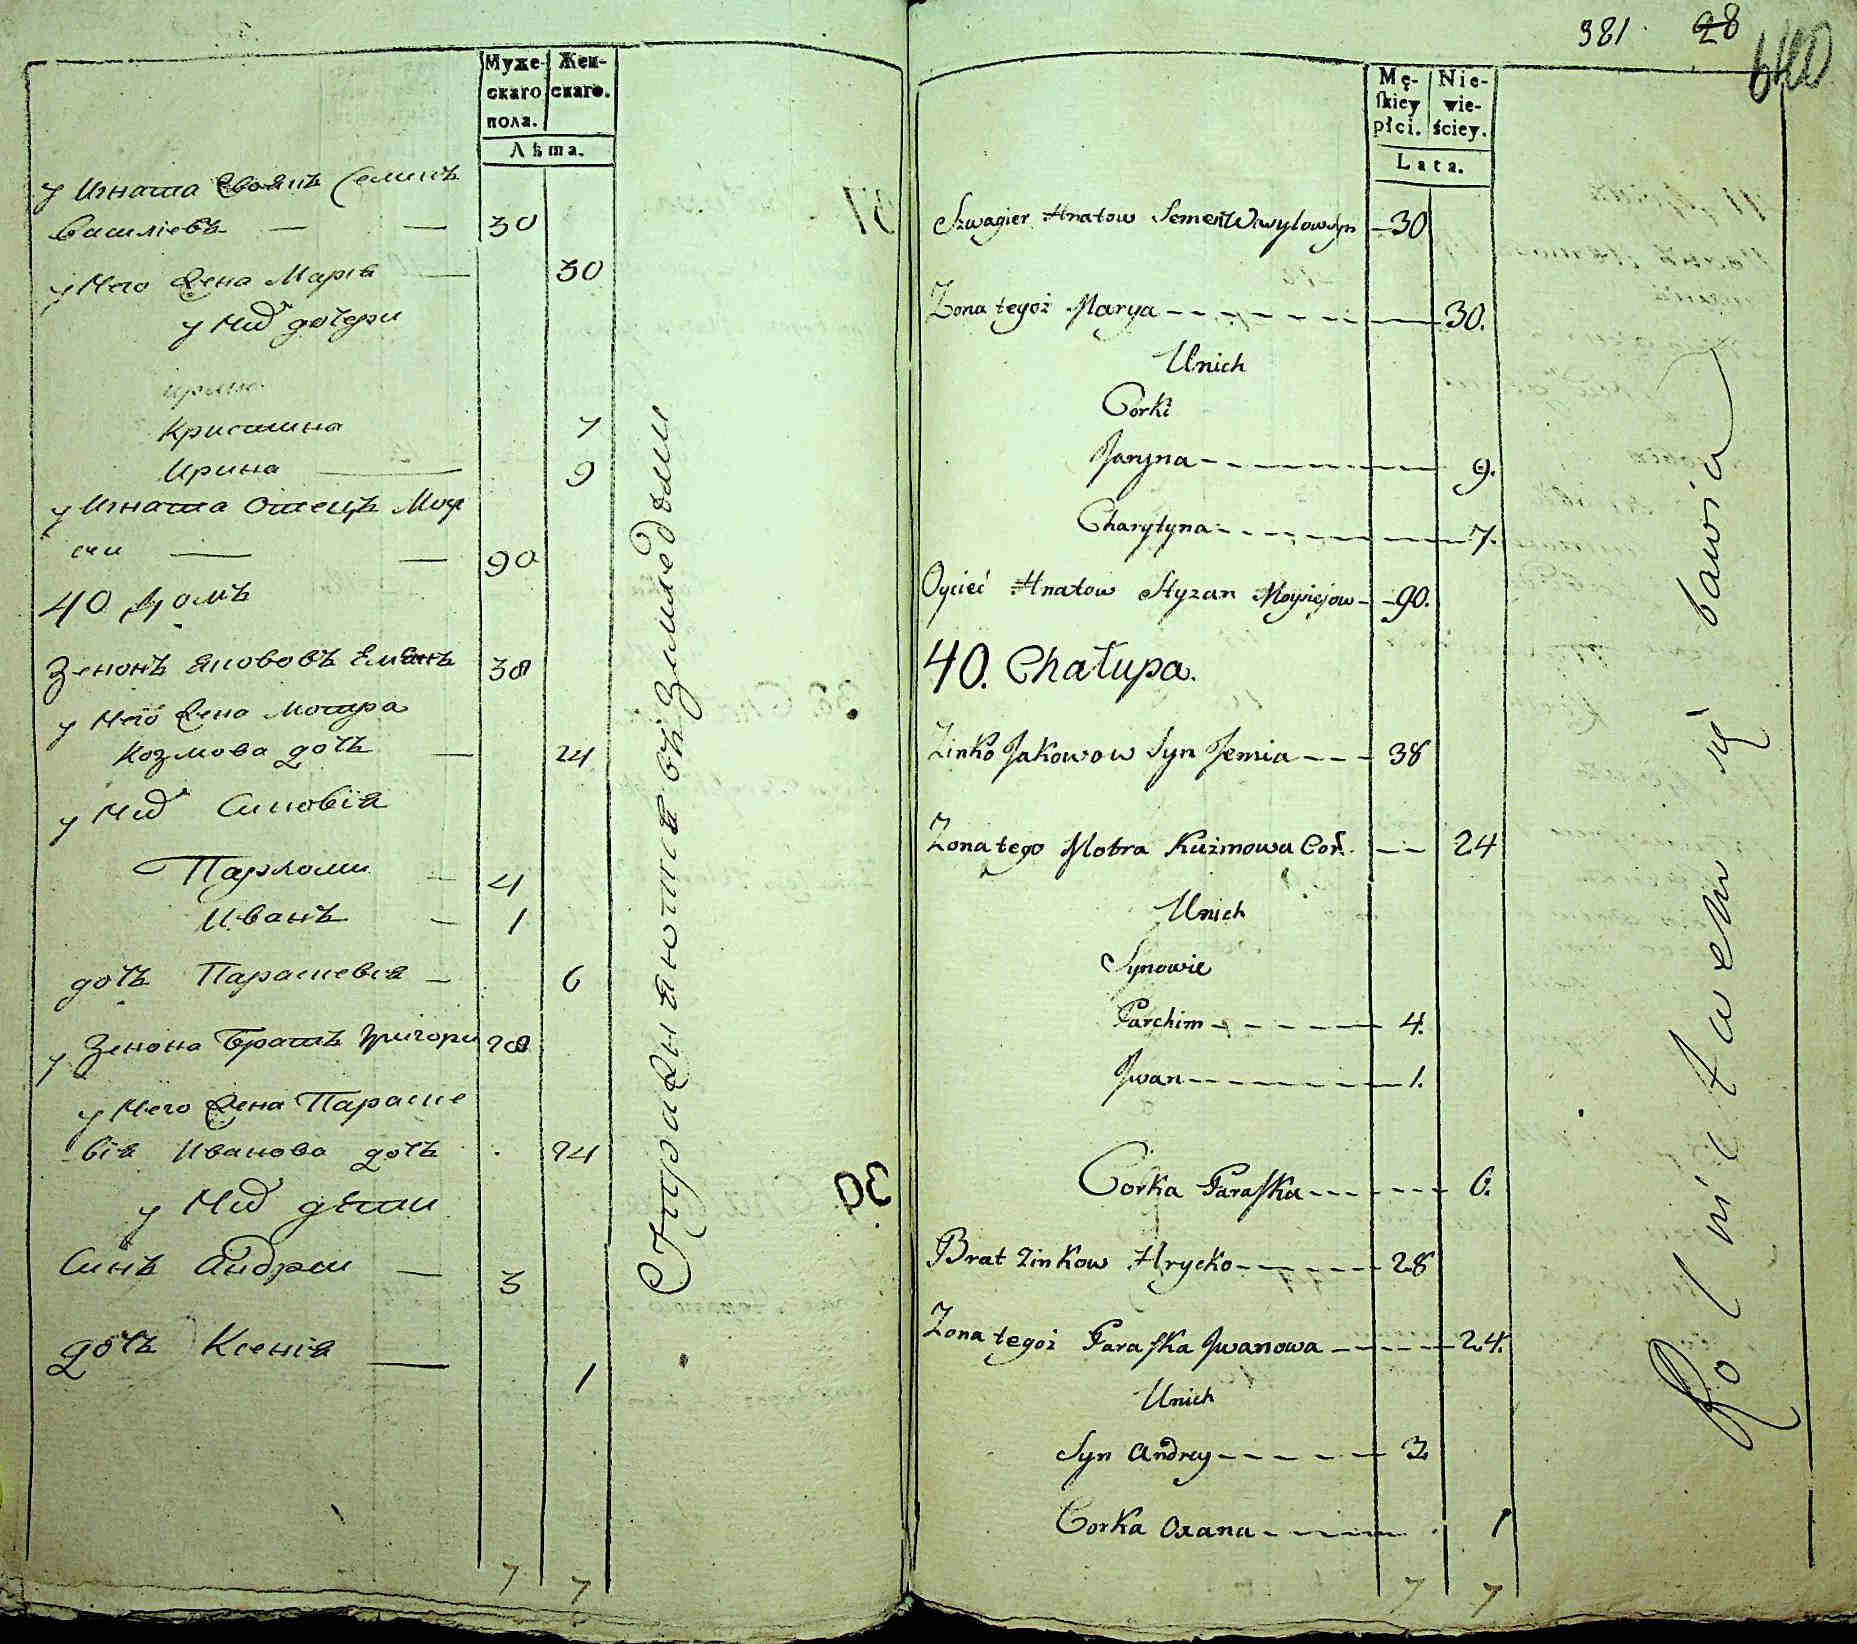 Муже-
скаго
пола.
Жен-
скаго.
Лѣта.
у Игната Своякъ Семенъ
Василіевъ — — 30
у Него Жена Марія — 30
у Них дочери
Кристина 7
Ирина — 9
у Игната Отецъ Мой
сеи — — 90
40 Домъ
Зенонъ Якововъ 38
у Него Жена Мотра
Козмова дочь — 24
у Них Синовія
Пархоми — 4
Иванъ — 1
дочь Парасковія — 6
у Зенона Братъ Григори 28
у Него Жена Параске
вія Иванова дочь 24
у Них дѣти
Синъ Андреи — 3
дочь Ксенія — 1
7 7
Упражняются въ Земледѣліи
381. 28
640
Mę-
ſkiey
płci.
Nie-
wie-
ściey.
Lata.
Szwagier Hnatow Semen Wasylow syn — 30
Zona tegoż Marya — 30.
Unich
Corki
Jaryna — 9.
Charytyna — 7.
Oyciec Hnatow Styzan Moysiejow — 90.
40. Chałupa.
Zinko Jakowow Syn Jemia — 38
Zona tego Motra Kuźmowa Cor. — 24
Unich
Synowie
Parchim — 4.
Jwan — 1.
Corka Paraſka — 6.
Brat Zinkow Hrycko — 28
Zona tegoż Paraſka Jwanowa — 24.
Unich
Syn Andrey — 3.
Corka Oxana — 1
7 7
Rolnictwem się bawia
37
39